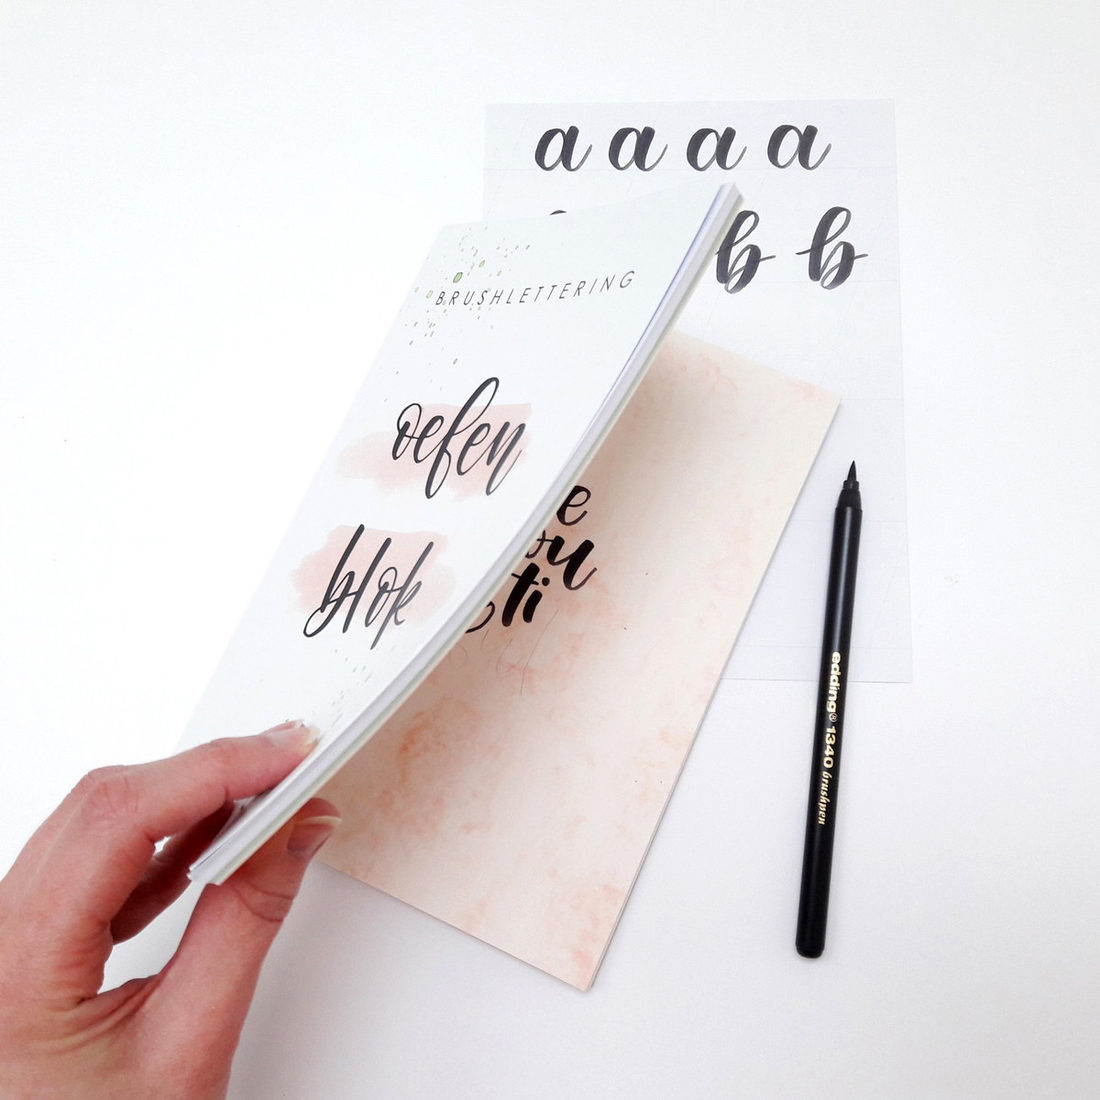 a a a a
b b
BRUSHLETTERING
oefen
blok
edding® 1340 brushpen